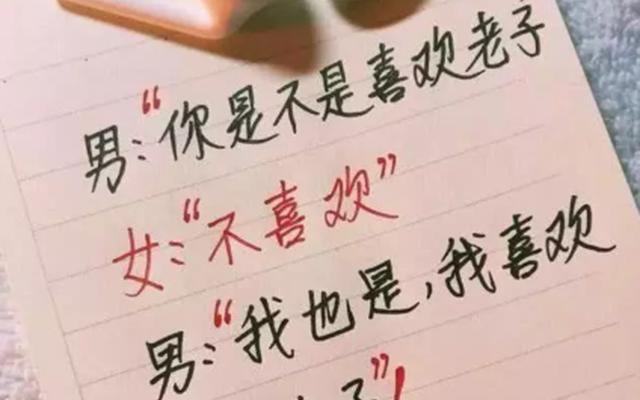 男:“你是不是喜欢老子
女:“不喜欢”
男:“我也是,我喜欢
子”!